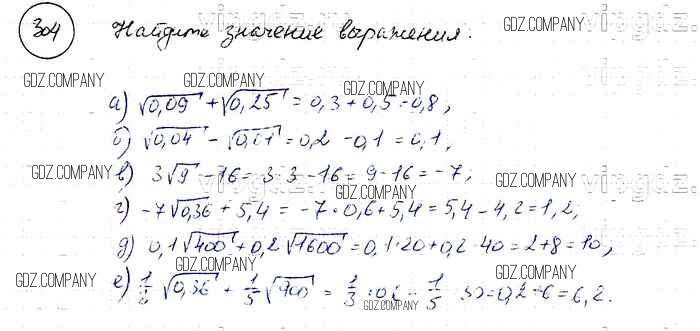 304 Найдите значение выражения.
GDZ.COMPANY GDZ.COMPANY GDZ.COMPANY
а) √0,09 + √0,25 = 0,3 + 0,5 = 0,8,
GDZ.COMPANY GDZ.COMPANY
б) √0,04 - √0,01 = 0,2 - 0,1 = 0,1,
GDZ.COMPANY
в) 3√9 - 16 = 3·3 - 16 = 9 - 16 = -7;
GDZ.COMPANY GDZ.COMPANY
г) -7√0,36 + 5,4 = -7·0,6 + 5,4 = 5,4 - 4,2 = 1,2,
GDZ.COMPANY GDZ.COMPANY
д) 0,1√400 + 0,2√1600 = 0,1·20 + 0,2·40 = 2+8 = 10,
GDZ.COMPANY GDZ.COMPANY
е) √0,36 + 1/5 √900 = 1/3 · 1/5 = 0,2 + 6 = 6,2.
GDZ.COMPANY GDZ.COMPANY